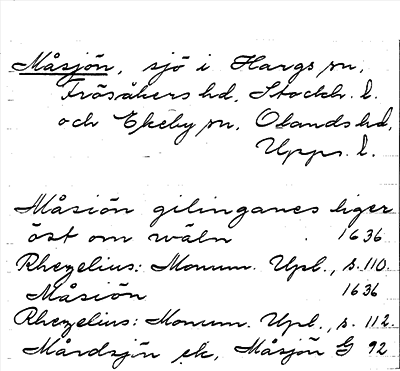 Måsjön, sjö i Hargs sn,
Frösåkers hd, Stockh. l.
och Ekeby sn, Olands hd,
Upps. l.
Måsiön gilinganes liger
öst om wäln 1636
Rhezelius: Monum. Upl., s. 110.
Måsiön 1636
Rhezelius: Monum. Upl., s. 112.
Mårdsjön ek, Måsjön G 92